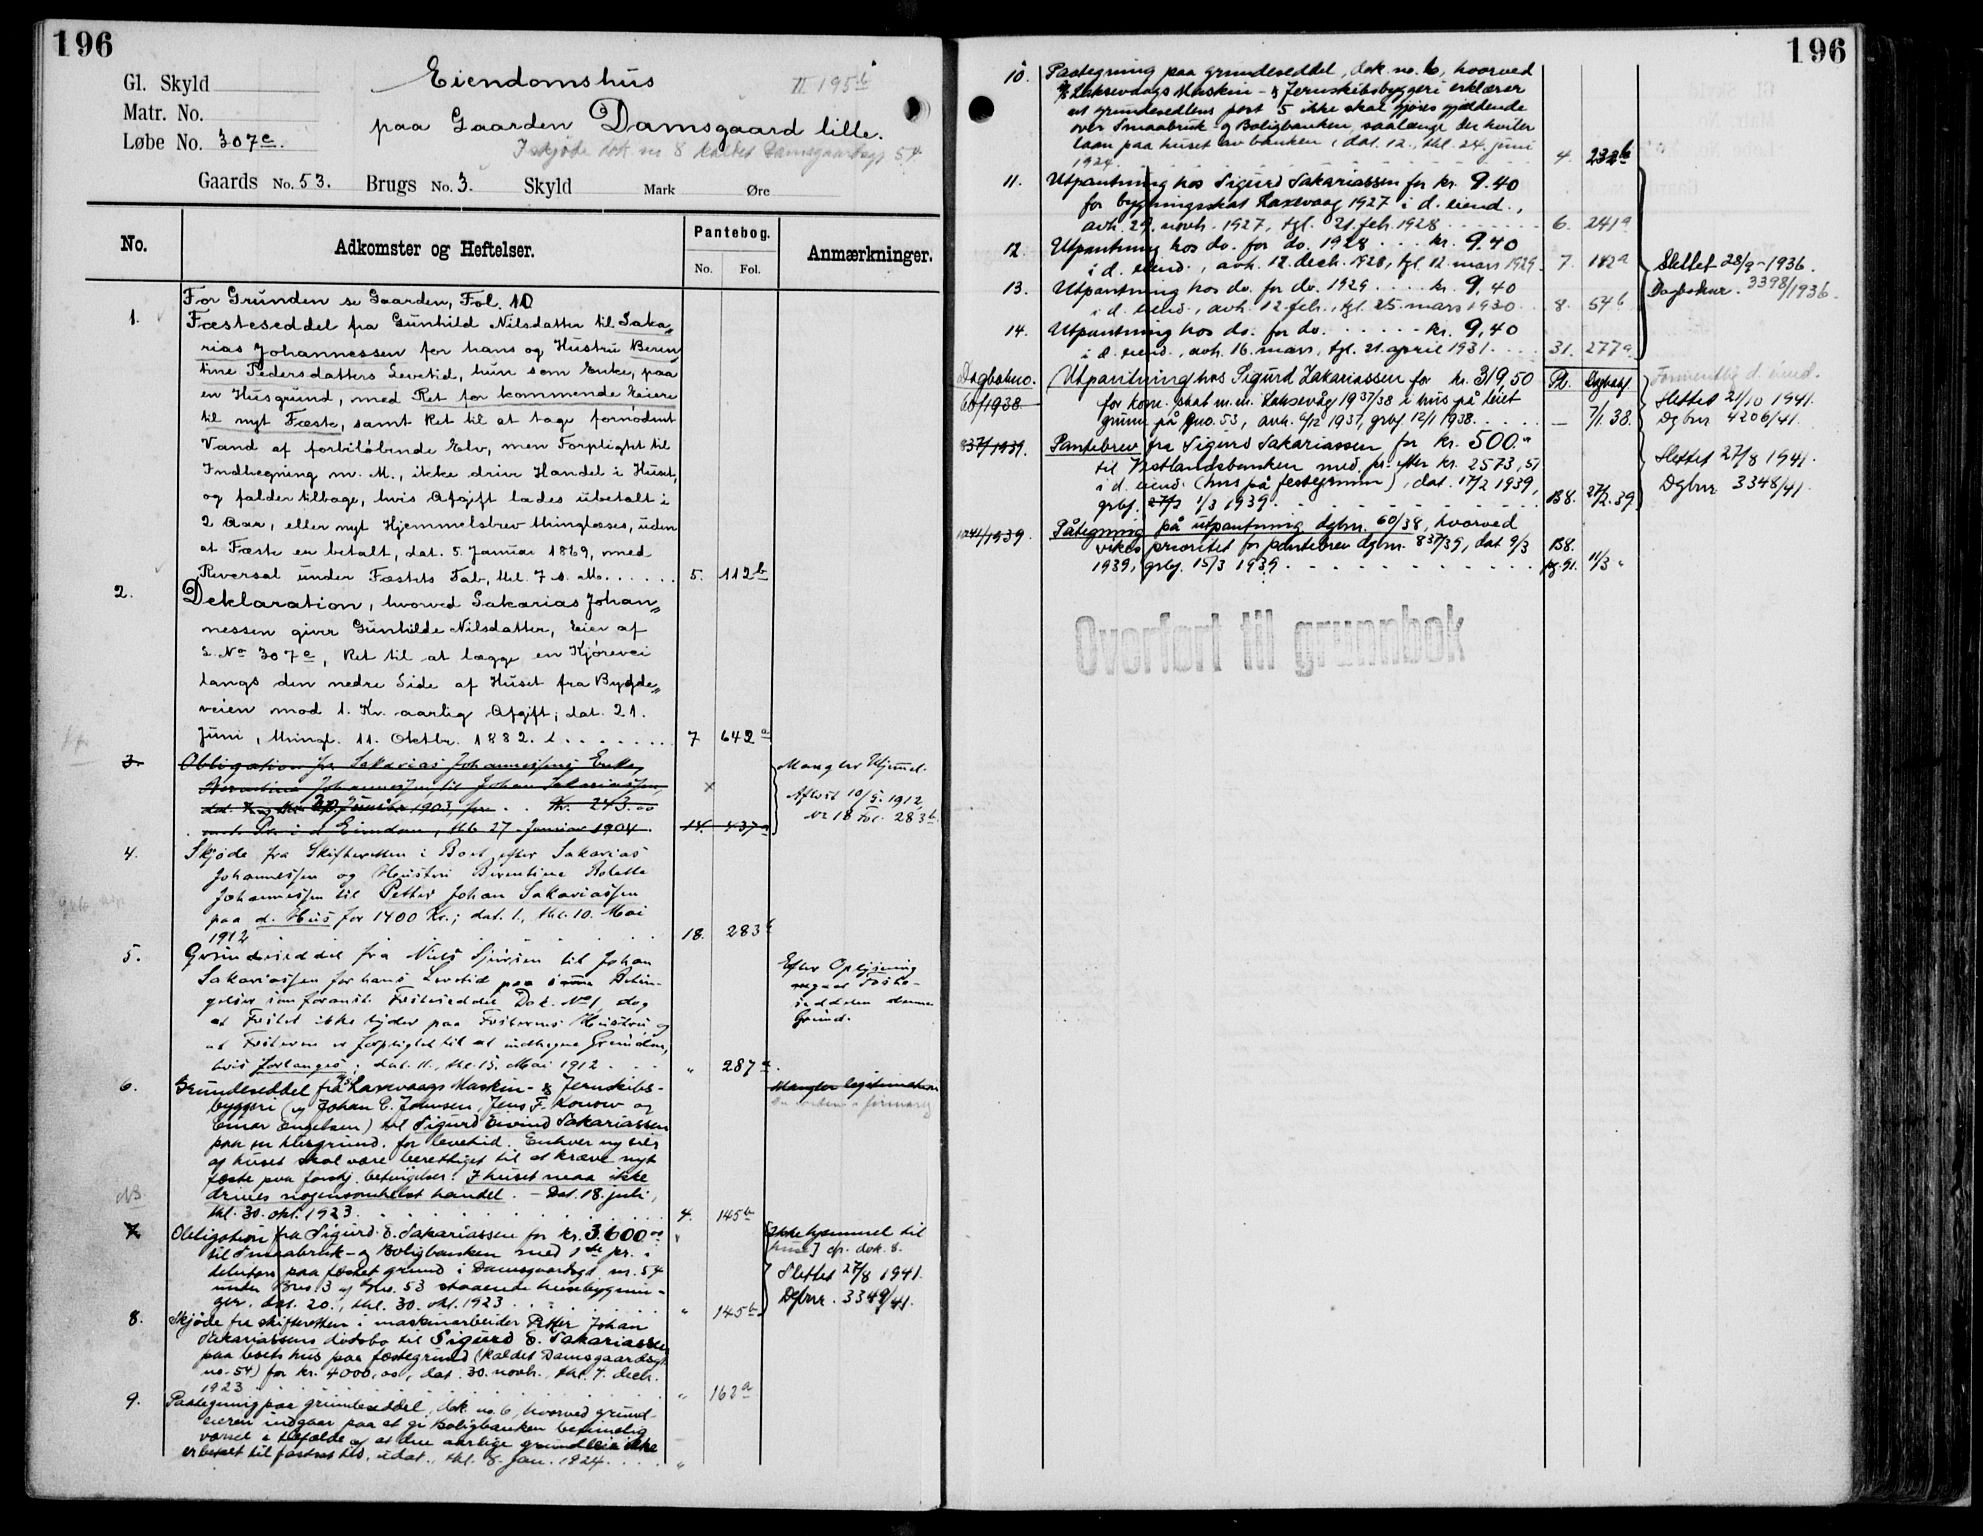 196
Gl. Skyld
Matr. No.
Løbe No. 307c.
Eiendomshus
II 195b
paa Gaarden Damsgaard lille.
I skjøde dok. no 8 kaldet Damsgaardsgt 54
Gaards No. 53. Brugs No. 3. Skyld Mark Øre
No.
Adkomster og Heftelser.
Pantebog.
No. Fol.
Anmærkninger.
For Grunden se Gaarden, Fol. 10
1. Fæsteseddel fra Gunhild Nilsdatter til Saka„
rias Johannessen for hans og Hustru Beren„
tine Pedersdatters Levetid, hun som Enke, paa
en Husgrund, med Ret for kommende Eiere
til nyt Fæste, samt Ret til at tage fornødent
Vand af forbiløbende Elv, men Forpligtet til
Indhegning m. M., ikke drive Handel i Huset,
og falder tilbage, hvis Afgift lades ubetalt i
2 Aar, eller nyt Hjemmelsbrev thinglæses, uden
at Fæste er betalt, dat. 5. Januar 1869, med
Reversal under Fæstets Tab, thl. 7 s. M. . . . . . 5. 112b
2. Deklaration, hvorved Sakarias Johan„
nessen giver Gunhilde Nilsdatter, Eier af
L. No 307e, Ret til at lægge en Kjørevei
langs den nedre Side af Huset fra Bygde„
veien mod 1. Kr. aarlig Afgift; dat. 21.
Juni, thingl. 11. Oktbr. 1882. . . . . . . 7 642a
3. Obligation fra Sakarias Johannessens Enke,
Berentine Johannessen, til Johan Sakariassen,
dat. 30 1903, for . . Kr. 243.00
med Pr. i d. Eiendom, thl. 27. Januar 1904. 14. 437a
Mangler Hjemmel.
Aflæst 10/5. 1912,
No 18 Fol. 283b.
4. Skjøde fra Skifteretten i Boet efter Sakarias
Johannessen og Hustru Berentine Bolette
Johannessen til Petter Johan Sakariassen
paa d. Hus for 1400 Kr.; dat. 1., thl. 10. Mai
1912 . . . . . . 18. 283b
5. Grundseddel fra Niels Sjursen til Johan
Sakariassen for hans Levetid paa samme Betin-
gelser som foranst. Festeseddel Dok. No 1, dog
at Festet ikke lyder paa Festerens Hustru, og
at Festeren er forpligtet til at indhegne Grunden,
hvis forlanges; dat. 11., thl. 15. Mai 1912 . . . „ 287a.
Efter Oplysning
angaar Feste-
seddelen denne
Grund.
6. Grundeseddel fra A/S Laxevaags Maskin- & Jernskibs-
byggeri (v/ Johan C. Jannsen, Jens F. Konow og
Einar Engelsen) til Sigurd Eivind Sakariassen
paa en husgrund, for levetid. Enhver ny eier
af huset skal være berettiget til at kræve nyt
feste paa forskj. betingelser. I huset maa ikke
drives nogensomhelst handel. – Dat. 18. juli,
thl. 30. okt. 1923. . . . . . 4. 145b
Mangler legitimation
NB
7. Obligation fra Sigurd E. Sakariassen for kr. 3600.00
til Smaabruk- og Boligbanken med 1ste pr. i
debitors paa festet grund i Damsgaardsgt no. 54
under Bno 3 af Gno. 53 staaende husebygnin-
ger, dat. 20., thl. 30. okt. 1923. . . . . . „ 145b
[Ikke hjemmel til
huset] cfr. dok. 8.
Slettet 27/8 1941.
Dgbnr. 3349/41.
8. Skjøde fra skifteretten i maskinarbeider Petter Johan
Sakariassens dødsbo til Sigurd E. Sakariassen
paa boets hus paa festegrund (kaldet Damsgaardsgt
no. 54) for kr. 4000,00, dat. 30. novb., thl. 4. decb.
1923 . . . . . . „ 162a
9. Paategning paa grundeseddel, dok. no. 6, hvorved grund-
eieren indgaar paa at gi Boligbanken betimelig
varsel i tilfælde af at den aarlige grundleie ikke
er betalt til fastsat tid, udat., thl. 8. jan. 1924. . . . . „
196
10. Paategning paa grundeseddel, dok. no. 6, hvorved
A/S Laksevaags Maskin- & Jernskibsbyggeri erklærer
at grundsedlens post 5 ikke skal gjøres gjældende
over Smaabruk- og Boligbanken, saalænge der hviler
laan paa huset av banken, dat. 12., thl. 24. juni
1924. . . . . . 4. 232b
11. Utpantning hos Sigurd Sakariassen for kr. 9.40
for bygningsskat Laxevaag 1927 i d. eiend.,
avh. 29. novb. 1927, tgl. 21. feb. 1928 . . . . . . 6. 241a
12 Utpantning hos do. for do. 1928 . . . kr. 9.40
i d. eiend., avh. 12. decb. 1928, tgl. 12. mars 1929. 7. 182a
13. Utpantning hos do. for do. 1929 . . . . kr. 9.40
i d. eiend., avh. 12. feb., tgl. 25. mars 1930. . 8. 54b
14. Utpantning hos do. for do. . . . . . kr. 9.40
i d. eiend., avh. 16. mars, tgl. 21. april 1931. . . . 31. 277a
Slettet 28/9-1936.
Dagboknr. 3398/1936.
Dagbokno. Utpantning hos Sigurd Zakariassen for kr. 319,50 Pb. Dagbokf
60/1938. for kom. skat m.m. Laksevåg 1937/38 i hus på leiet
grunn på gno. 53, avh. 6/12 1937, grbf. 12/1 1938. . . . . — 7/1.38.
Formentlig d. eiend.
Slettet 21/10 1941.
Dgbnr 4206/41.
837/1939. Pantebrev fra Sigurd Sakariassen for kr. 500.-
til Vestlandsbanken med pr. efter kr. 2573,51
i d. eiend. (hus på festegrunn), dat. 17/2 1939,
grbf. 27/2 1/3 1939. . . . . . B8. 27/2.39
Slettet 27/8 1941.
Dgbnr 3348/41.
1041/1939. Påtegning på utpantning dgbnr. 60/38, hvorved
vikes prioritet for pantebrev dgbnr. 837/39, dat. 9/3 B8.
1939, grbf. 15/3 1939. . . . . . . pg. 91. 11/3 "
Overført til grunnbok